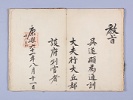 教旨
吳爲通訓
大夫行大丘都
護府判官者
康熙六十一年八月十一日